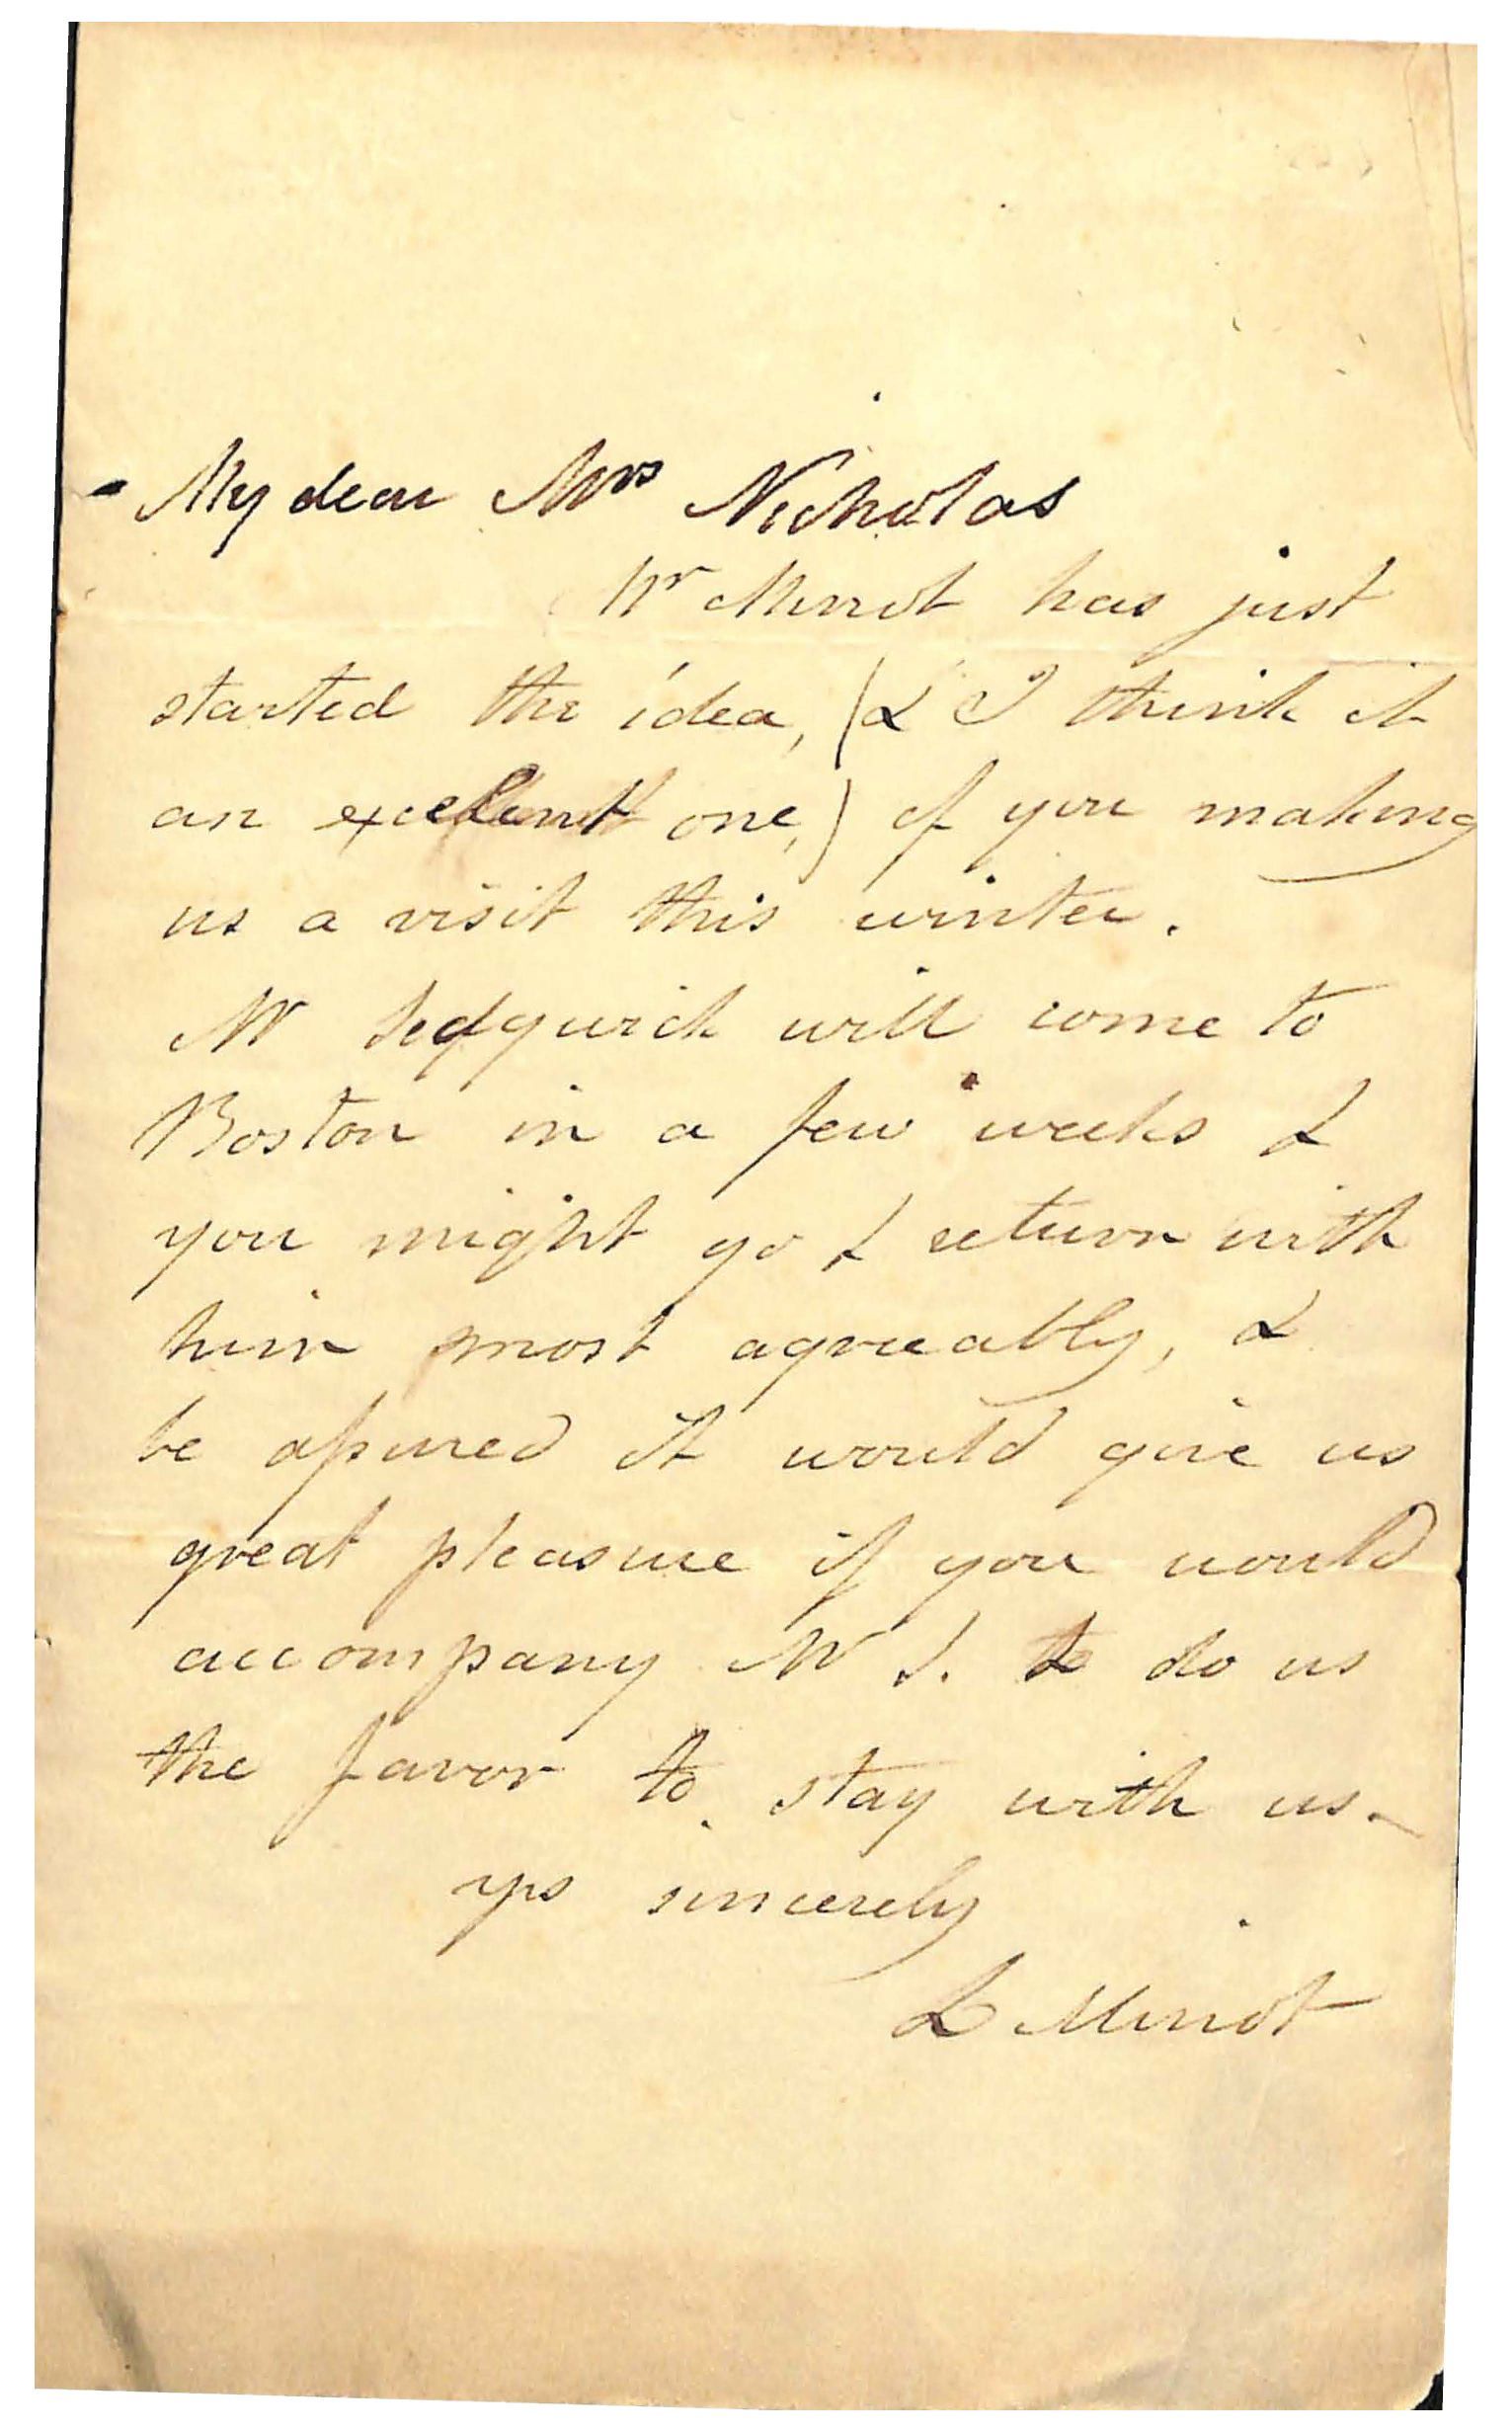 My dear Mrs Nicholas
Mr Minot has just
started the idea, (& I think it
an excellent one,) of you making
us a visit this winter.
Mr Sedgwick will come to
Boston in a few weeks &
you might go & return with
him most agreeably, &
be assured it would give us
great pleasure if you would
accompany Mr S. & do us
the favor to stay with us -
yrs sincerely
L Minot